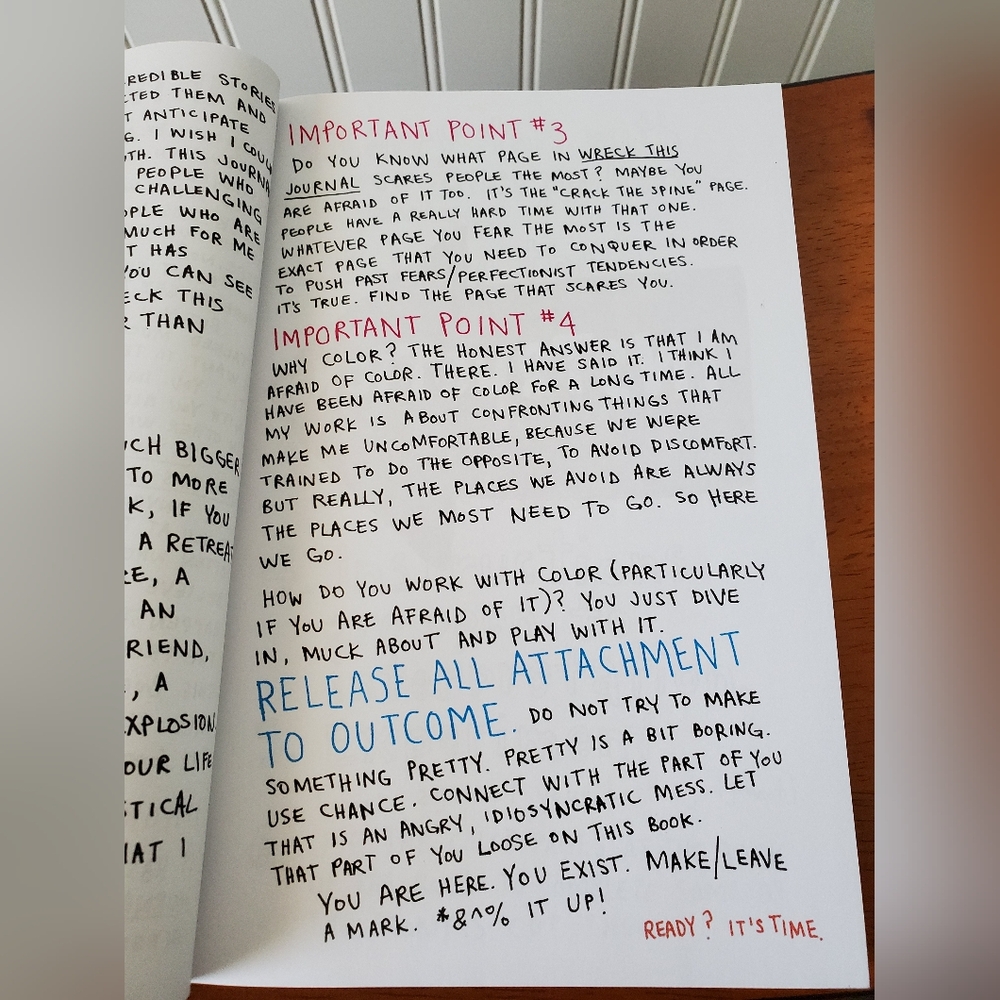 REDIBLE STORIES
CTED THEM AND
T ANTICIPATE
G. I WISH I COUL
TH. THIS JOURNA
PEOPLE WHO
CHALLENGING
OPLE WHO ARE
MUCH FOR ME
T HAS
YOU CAN SEE
ECK THIS
R THAN
UCH BIGGER
TO MORE
K, IF YOU
A RETREAT
RE, A
AN
RIEND,
, A
EXPLOSION
OUR LIFE
STICAL
HAT I
IMPORTANT POINT #3
DO YOU KNOW WHAT PAGE IN WRECK THIS
JOURNAL SCARES PEOPLE THE MOST? MAYBE YOU
ARE AFRAID OF IT TOO. IT'S THE "CRACK THE SPINE" PAGE.
PEOPLE HAVE A REALLY HARD TIME WITH THAT ONE.
WHATEVER PAGE YOU FEAR THE MOST IS THE
EXACT PAGE THAT YOU NEED TO CONQUER IN ORDER
TO PUSH PAST FEARS/PERFECTIONIST TENDENCIES.
IT'S TRUE. FIND THE PAGE THAT SCARES YOU.
IMPORTANT POINT #4
WHY COLOR? THE HONEST ANSWER IS THAT I AM
AFRAID OF COLOR. THERE. I HAVE SAID IT. I THINK I
HAVE BEEN AFRAID OF COLOR FOR A LONG TIME. ALL
MY WORK IS ABOUT CONFRONTING THINGS THAT
MAKE ME UNCOMFORTABLE, BECAUSE WE WERE
TRAINED TO DO THE OPPOSITE, TO AVOID DISCOMFORT.
BUT REALLY, THE PLACES WE AVOID ARE ALWAYS
THE PLACES WE MOST NEED TO GO. SO HERE
WE GO.
HOW DO YOU WORK WITH COLOR (PARTICULARLY
IF YOU ARE AFRAID OF IT)? YOU JUST DIVE
IN, MUCK ABOUT AND PLAY WITH IT.
RELEASE ALL ATTACHMENT
TO OUTCOME. DO NOT TRY TO MAKE
SOMETHING PRETTY. PRETTY IS A BIT BORING.
USE CHANCE. CONNECT WITH THE PART OF YOU
THAT IS AN ANGRY, IDIOSYNCRATIC MESS. LET
THAT PART OF YOU LOOSE ON THIS BOOK.
YOU ARE HERE. YOU EXIST. MAKE/LEAVE
A MARK. *&^% IT UP!
READY? IT'S TIME.